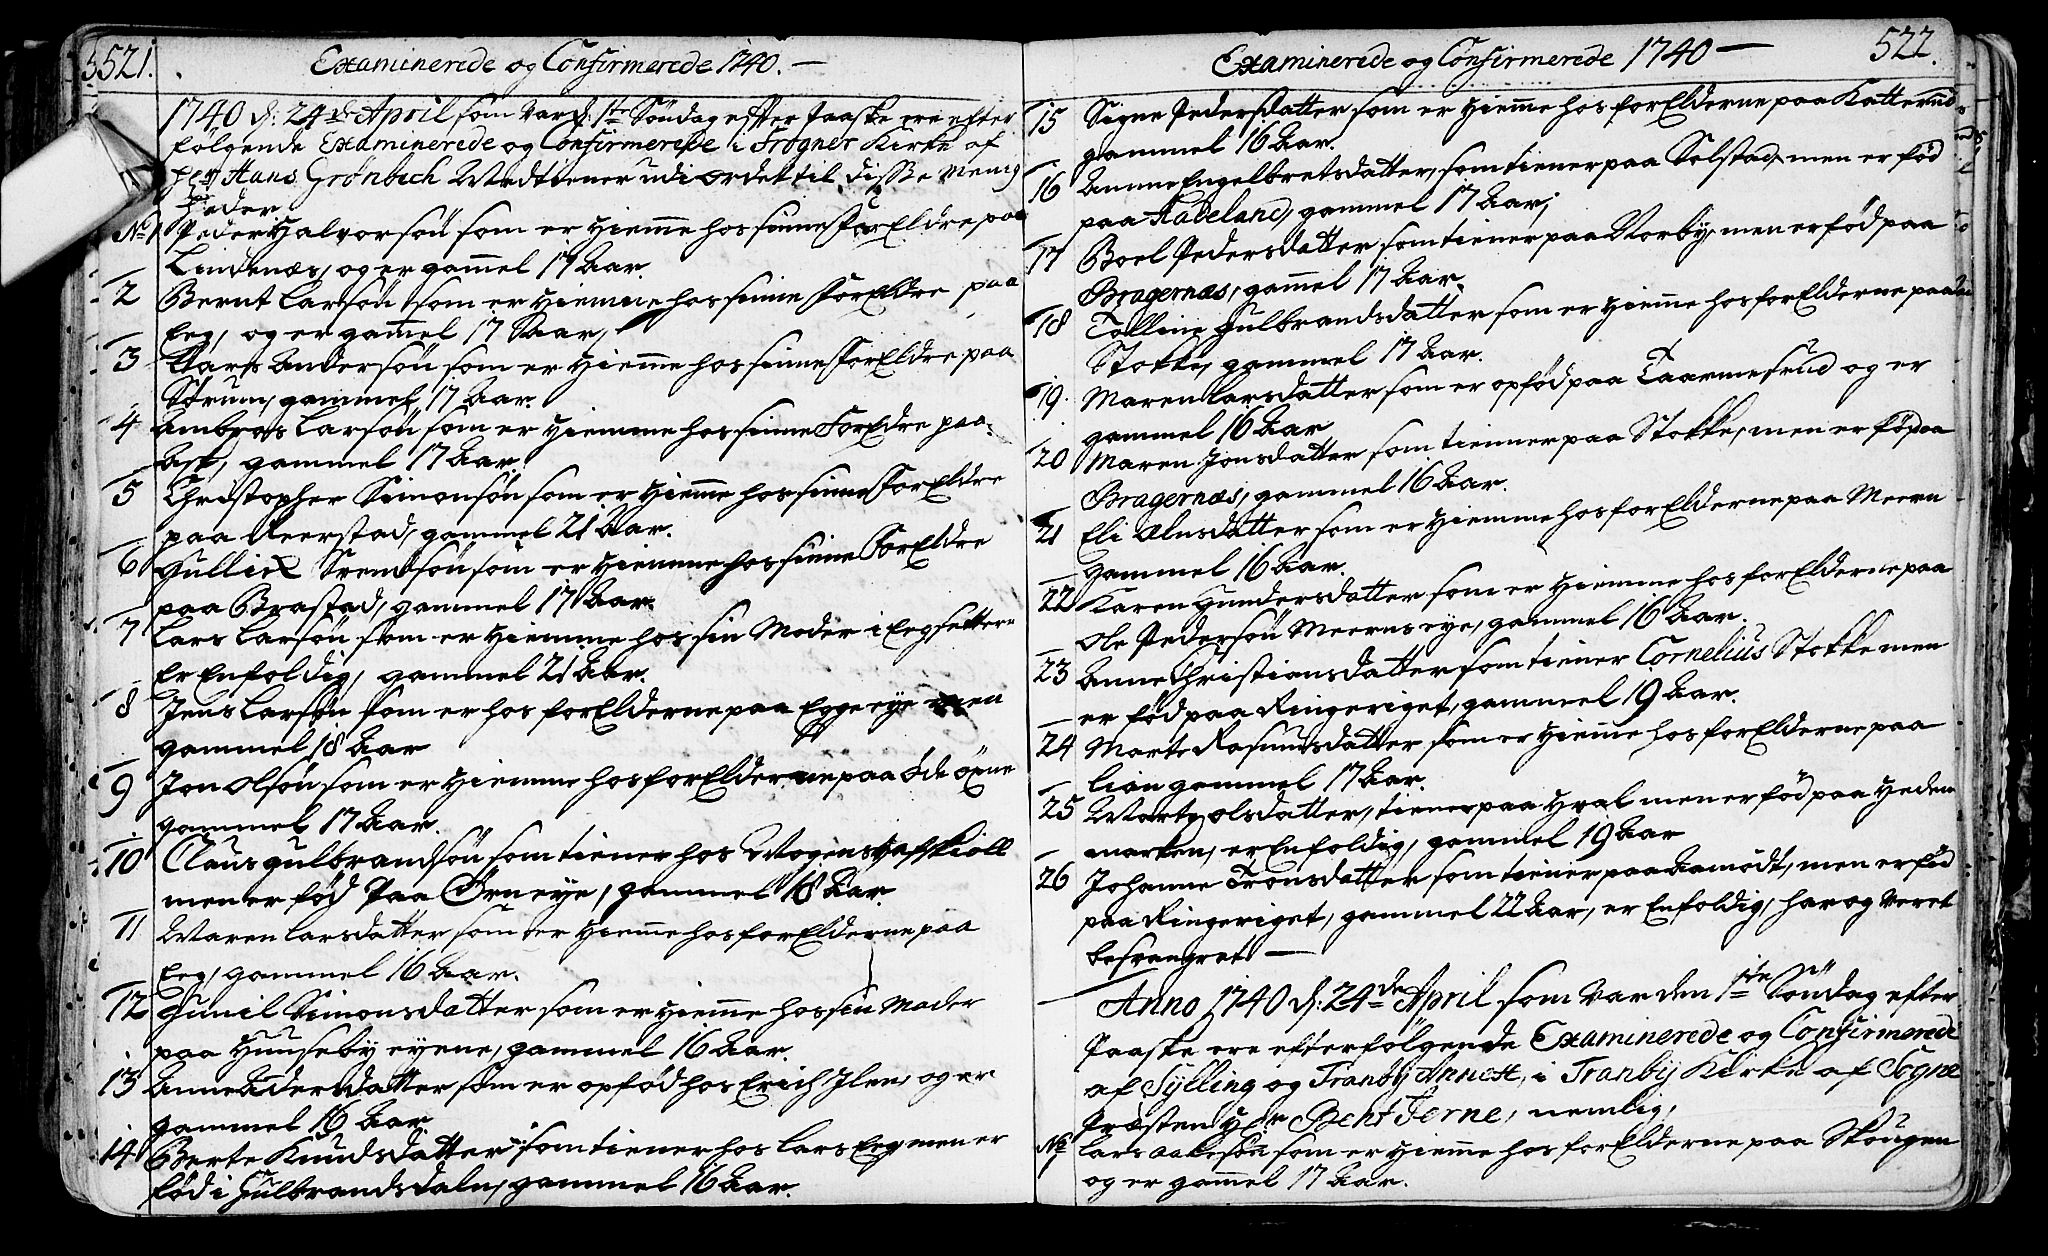 521.
Examinerede og Confirmerede 1740. —
1740 d: 24de April som var d: 1te Søndag efter Paaske ere efter
følgende Examinerede og Confirmerede i Frogner Kirke af
Herr Hans Grønbech Medtiener udi ordet til disse Menig
heder
No 1 Peder Halvorsøn som er hiemme hos sinne ForEldre paa
Lindenæs, og er gammel 17 Aar.
2 Bernt Larsøn som er hiemme hos sinne ForEldre paa
Eeg, og er gammel 17 Aar,
3 Lars Andersøn som er hiemme hos sinne ForEldre paa
Strum, gammel 17 Aar.
4 Ambros Larsøn som er hiemme hos sinne ForEldre paa
Ask, gammel 17 Aar.
5 Christopher Simonsøn som er hiemme hos sinne ForEldre
paa Reerstad, gammel 21 Aar.
6 Gullick Svendsøn som er hiemme hos sinne ForEldre
paa Brastad, gammel 17 Aar.
7 Lars Larsøn som er hiemme hos sin Moder i Eegsettere
Er Enfoldig, gammel 21 Aar.
8 Jens Larsøn som er hos forElderne paa Egge eye
gammel 18 Aar
9 Jon Olsøn som er hiemme hos forElderne paa øde öxne
gammel 17 Aar.
10 Claus Gulbrandsøn som tiener hos Mogens Hafskioll
men er fød Paa Ørneye, gammel 18 Aar
11 Maren Larsdatter som er hiemme hos forElderne paa
Eeg, gammel 16 Aar.
12 Gunil Simonsdatter som er hiemme hos sin Moder
paa Huuseby eyene, gammel 16 Aar.
13 Anne Adersdatter som er opfød hos Erich Ilen, og er
gammel 16 Aar.
14 Berte Knudsdatter som tiener hos Lars Eeg men er
fød i Gulbrandsdaln, gammel 16 Aar.
522.
Examinerede og Confirmerede 1740 —
15 Signe Pedersdatter som er hiemme hos forElderne paa Katterud
gammel 16 Aar.
16 Anne Engelbretsdatter, som tiener paa Solstad, men er fød
paa Hadeland, gammel 17 Aar,
17 Boel Pedersdatter som tiener paa Norby, men er fød paa
Bragernæs, gammel 17 Aar.
18 Tolline Gulbrandsdatter som er hiemme hos forElderne paa
Stokke, gammel 17 Aar.
19. Maren Larsdatter som er opfød paa Taarmesrud og er
gammel 16 Aar
20 Maren Jonsdatter som tienner paa Stokke, men er fød paa
Bragernæs, gammel 16 Aar.
21 Eli Alnsdatter som er hiemme hos forElderne paa Meern
gammel 16 Aar.
22 Karen Gundersdatter som er hiemme hos forElderne paa
Ole Pedersøn Meerns eye, gammel 16 Aar.
23 Anne Christiansdatter som tiener Cornelius Stokke men
er fød paa Ringeriget, gammel 19 Aar.
24 Marte Rasmusdatter som er hiemme hos forElderne paa
Lian gammel 17 Aar.
25 Marte Olsdatter, tiener paa Hval men er fød paa Hede
marken, er Enfoldig, gammel 19 Aar
26 Johanne Tronsdatter som tiener paa Aamodt, men er fød
paa Ringeriget, gammel 22 Aar, er Enfoldig, har og veret
besvangret. —
Anno 1740 d: 24de April som var den 1ste Söndag efter
Paaske ere efterfølgende Examinerede og Confirmerede
af Sylling og Tranby Annext, i Tranby Kirke af Sogne
Præsten Herr Bent Terne, nemlig,
No 1 Lars Aakesøn som er hiemme hos forElderne paa Skougen
og er gammel 17 Aar.